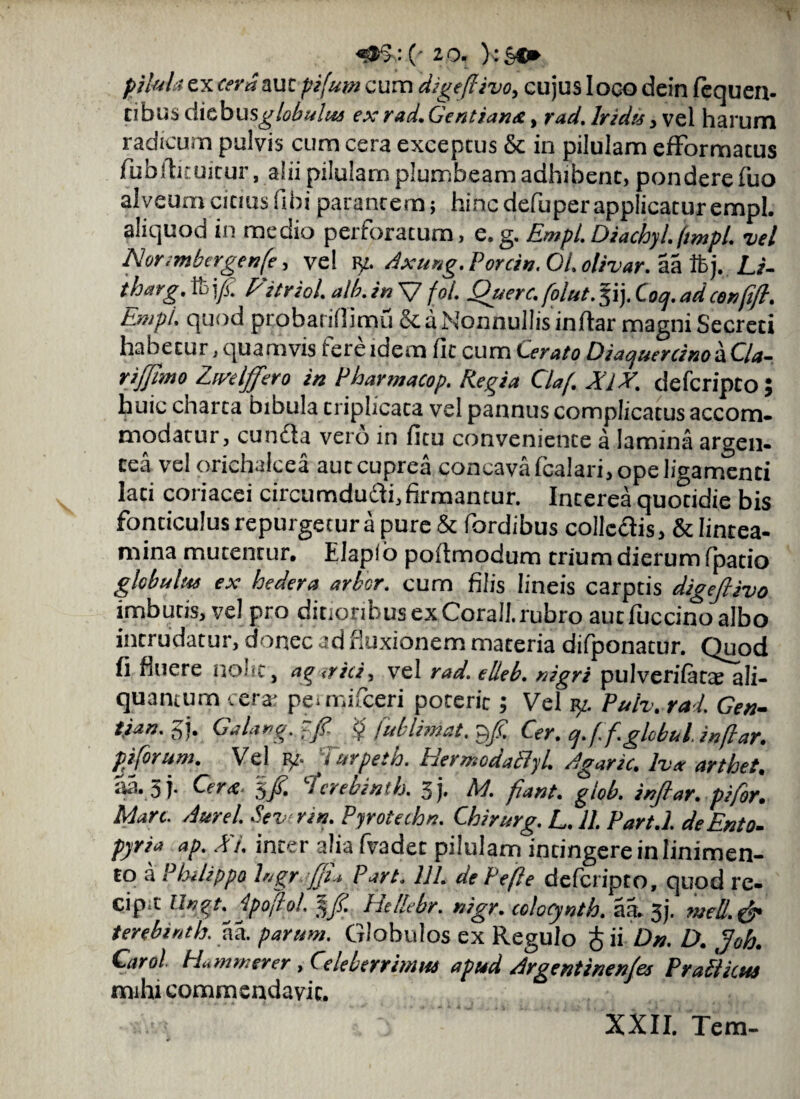 ( 20. ):
pilula ex cera aut pisum cum digestivo, cujus loco dein sequen-
tibus diebus globulus ex rad. Gentianæ, rad. Iridis, vel harum
radicum pulvis cum cera exceptus & in pilulam efformatus
substituitur, alii pilulam plumbeam adhibent, pondere suo
alveum citius sibi parantem; hinc desuper applicatur empl.
aliquod in medio perforatum, e. g. Empl. Diachyl. simpl. vel
Norimbergense, vel ℞. Axung. Porcin. Ol. olivar. āā ℔j. Li-
tharg. ℔jß. Vitriol. alb. in ▽ fol. Querc. solut. ℥ij. Coq. ad consist.
Empl. quod probatissimū & à Nonnullis instar magni Secreti
habetur, quamvis ferè idem sit cum Cerato Diaquercino à Cla-
rissimo Zwelffero in Pharmacop. Regia Clas. XIX. descripto;
huic charta bibula triplicata vel pannus complicatus accom-
modatur, cuncta verò in situ conveniente à laminâ argen-
teâ vel orichalceâ aut cupreâ concavâ scalari, ope ligamenti
lati coriacei circumducti, firmantur. Intereà quotidie bis
fonticulus repurgetur à pure & sordibus collectis, & lintea-
mina mutentur. Elapso postmodum trium dierum spatio
globulus ex hedera arbor. cum filis lineis carptis digestivo
imbutis, vel pro ditioribus ex Corall. rubro aut succino albo
intrudatur, donec ad fluxionem materia disponatur. Quod
si fluere nolit, agarici, vel rad. elleb. nigri pulverisatæ ali-
quantum ceræ permisceri poterit; Vel ℞. Pulv. rad. Gen-
tian. ʒj. Galang. ʒß. ☿ sublimat. ℈ß. Cer. q. s. f. globul. instar.
pisorum. Vel ℞. Turpeth. Hermodactyl. Agaric. Ivæ arthet.
āā. ʒj. Ceræ ℥ß. Terebinth. ʒj. M. fiant. glob. instar. pisor.
Marc. Aurel. Severin. Pyrotechn. Chirurg. L. II. Part. I. de Ento-
pyria ap. XI. inter alia svadet pilulam intingere in linimen-
to à Philippo Ingrassia Part. III. de Peste descripto, quod re-
cipit Ungt. Apostol. ℥ß. Hellebr. nigr. colocynth. āā. ʒj. mell. &
terebinth. āā. parum. Globulos ex Regulo ♁ii Dn. D. Joh.
Carol. Hammerer, Celeberrimus apud Argentinenses Practicus
mihi commendavit.
XXII. Tem-